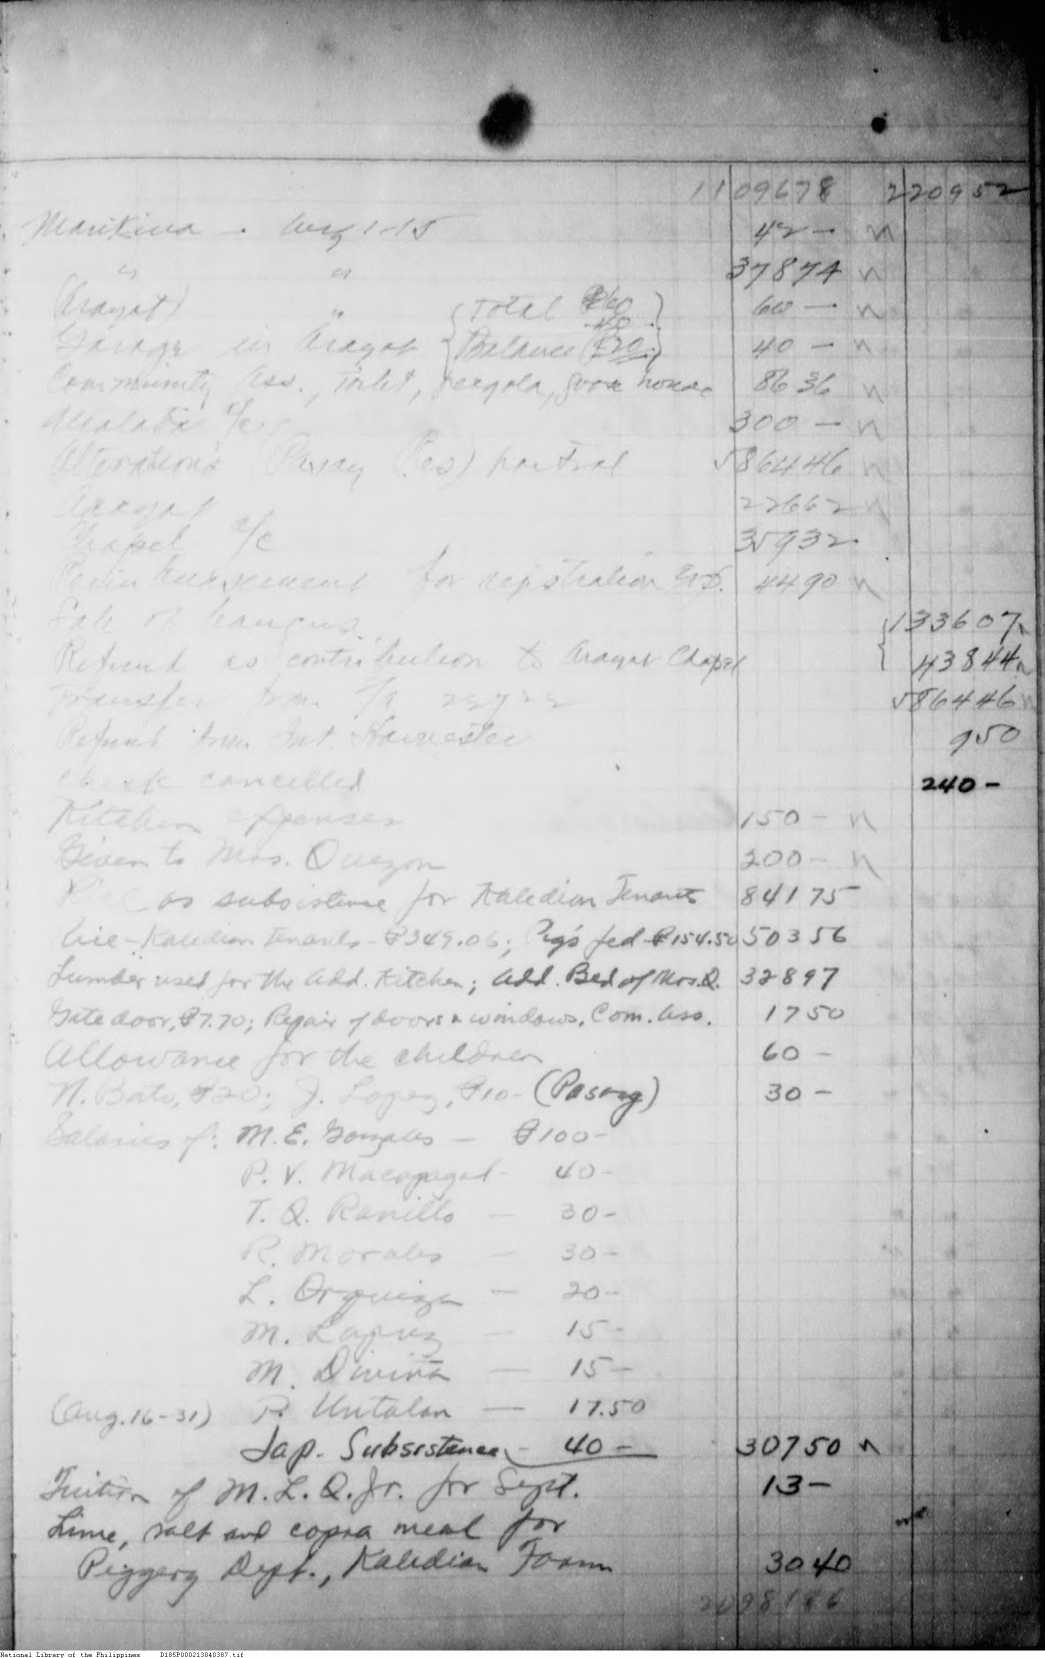 1109678 220952
Marikina - Aug 1-15 42 - n
" " 37874 n
(Arayat) " Total ₱60 60 - n
40
Garage in Arayat Balance ₱20. 40 - n
Community Ass., toilet, pergola, 8636 n
a/c 300 - n
Alterations (Pasay Res) 586446 n
Arayat 22662 n
Chapel a/c 35932
for registration 4490 n
Sale of bangus 133607 n
Refund as contribution to Arayat Chapel 43844 n
Transfer from 586446 n
Refund from Int. Harvester 950
Check cancelled 240 -
Kitchen expenses 150 - n
Given to Mrs. Quezon 200 - n
as subsistence for Kaledian Tenants 84175
Kaledian tenants - ₱349.06; Pigs fed ₱154.50 50356
Lumber used for the add. Kitchen; add. Bed of Mrs. Q. 32897
Gate door, ₱7.70; Repair of doors & windows, Com. Ass. 1750
Allowance for the children 60 -
N. Bato, ₱20; J. Lopez, ₱10 - (Pasay) 30 -
Salaries of: M. E. Gonzales - ₱100 -
P. V. Macapagal - 40 -
T. Q. Ranillo - 30 -
R. Morales - 30 -
L. - 20 -
M. - 15 -
M. Divina - 15 -
(Aug. 16-31) P. Untalan - 17.50
Jap. Subsistence - 40 - 30750 n
Tuition of M. L. Q. Jr. for Sept. 13 -
Lime, salt and copra meal for
Piggery Dept., Kaledian Farm 3040
2098186
National Library of the Philippines D185P000213840387.tif